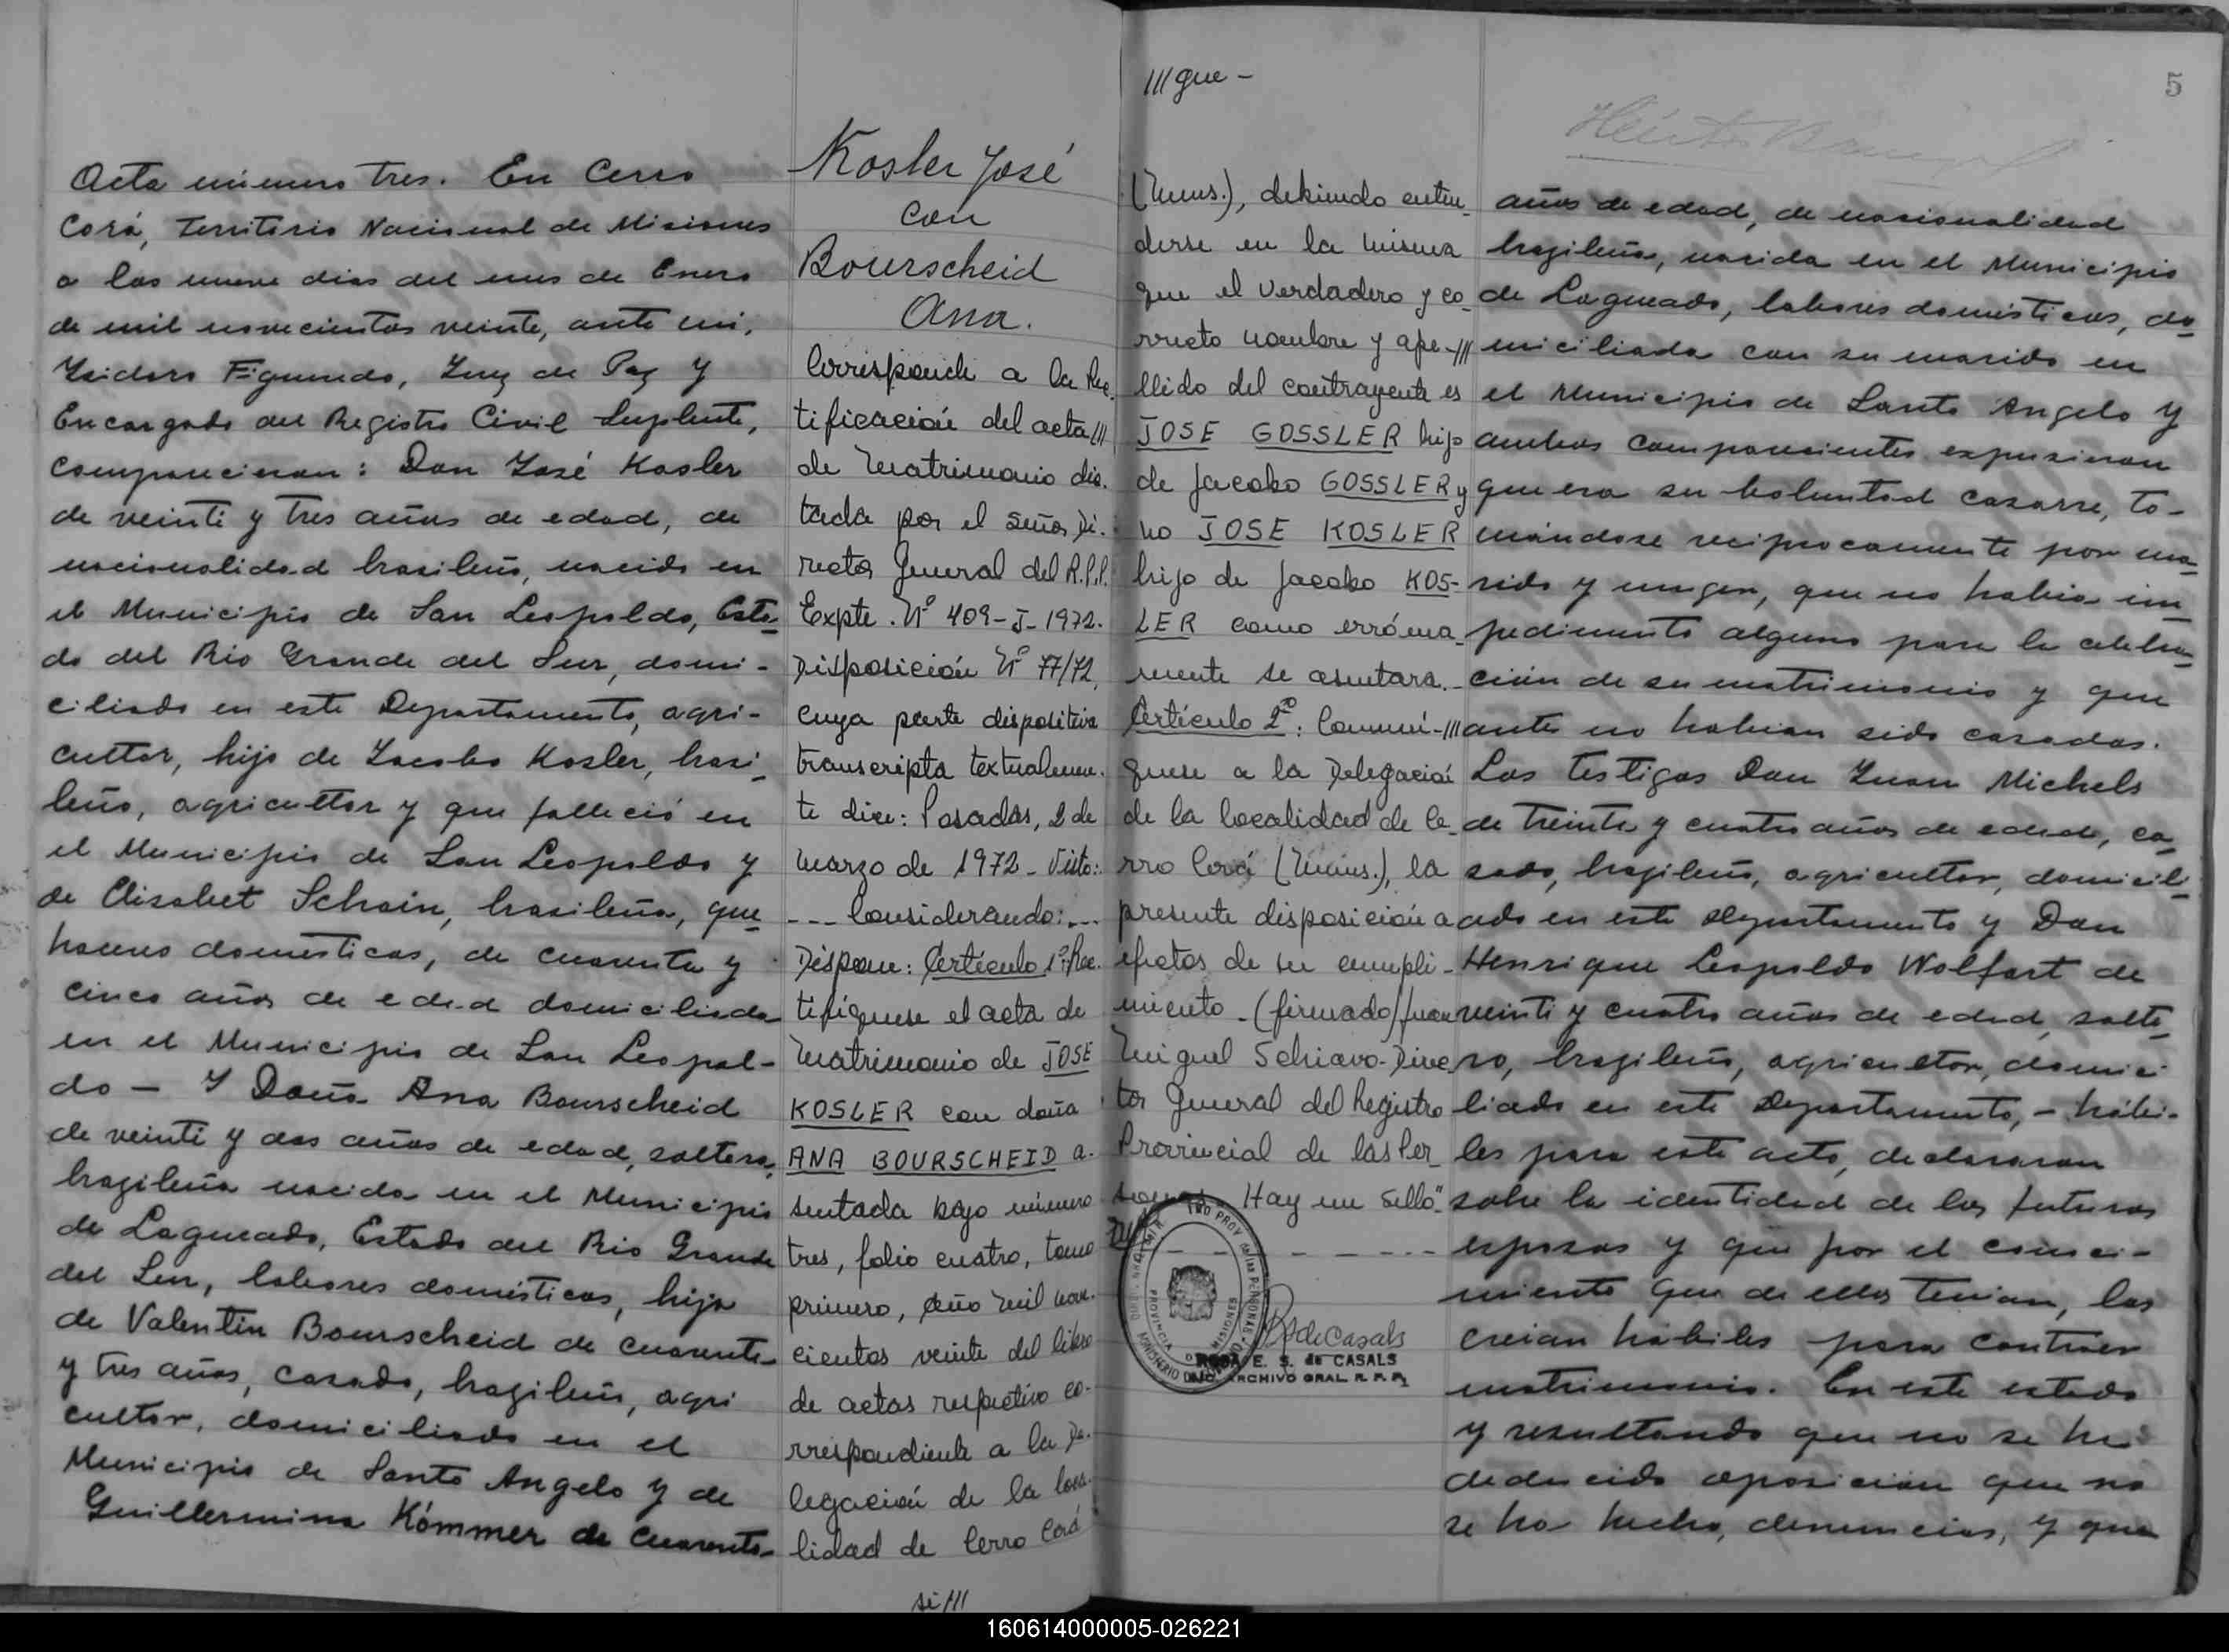 Acta número tres. En Cerro
Corá, Territorio Nacional de Misiones
a los nueve dias del mes de Enero
de mil novecientos veinte, ante mi,
Ysidoro Figueredo, Juez de Paz y
Encargado del Registro Civil Suplente,
comparecieron: Don José Kosler
de veinti y tres años de edad, de
nacionalidad brasileño, nacido en
el Municipio de San Leopoldo, Esta-
do del Rio Grande del Sur, domi-
ciliado en este Departamento, agri-
cultor, hijo de Jacobo Kosler, brasi-
leño, agricultor y que falleció en
el Municipio de San Leopoldo y
de Elisabet Schain, brasileña, que
haceres domésticos, de cuarenta y
cinco años de edad domiciliada
en el Municipio de San Leopol-
do — Y Doña Ana Bourscheid
de veinti y dos años de edad, soltera,
brazileña nacida en el Municipio
de Lagueado, Estado del Rio Grande
del Sur, labores domésticos, hija
de Valentin Bourscheid de cuarenta
y tres años, casado, brazileño, agri
cultor, domiciliado en el
Municipio de Santo Angelo y de
Guillermina Kömmer de cuarenta
Kosler José
con
Bourscheid
Ana.
Corresponde a la Rec-
tificación del acta///
de Matrimonio dic-
tada por el Señor Di-
rector General del R.P.P.
Expte. Nº 409-J-1972.
Disposición Nº 77/72,
cuya parte dispositiva
transcripta textualmen-
te dice: Posadas, 2 de
marzo de 1972 - Visto:
--- Considerando: ---
Dispone: Artículo 1º: Rec-
tifíquese el acta de
Matrimonio de JOSE
KOSLER con doña
ANA BOURSCHEID a-
sentada bajo número
tres, folio cuatro, tomo
primero, año mil nove-
cientos veinte del libro
de actas respectivo co-
rrespondiente a la De-
legación de la loca-
lidad de Cerro Corá
si///
///gue -
(Mnes.), debiendo enten-
derse en la misma
que el verdadero y co-
rrecto nombre y ape-///
llido del contrayente es
JOSE GOSSLER hijo
de Jacobo GOSSLER y
no JOSE KOSLER
hijo de Jacobo KOS-
LER como erró­nea-
mente se asentara.-
Artículo 2º: Comuní-///
quese a la Delegación
de la localidad de Ce-
rro Corá (Mnes.), la
presente disposición a
efectos de su cumpli-
miento - (firmado) Juan
Miguel Schiavo - Direc-
tor General del Registro
Provincial de las Per-
sonas Hay un sello"
PROVINCIA DE MISIONES
RS de Casals
ROSA E. S. de CASALS
ARCHIVO GRAL R. P. P.
5
años de edad, de nacionalidad
brazileña, nacida en el Municipio
de Lagueado, labores domésticos, do
miciliada con su marido en
el Municipio de Santo Angelo y
ambos comparecientes expusieron
que era su voluntad casarse, to-
mándose reciprocamente por ma
rido y muger, que no habia im
pedimento alguno para la celebra
ción de su matrimonio y que
antes no habian sido casados.
Los testigos Don Juan Michels
de treinta y cuatro años de edad, ca
sado, brazileño, agricultor, domicili
ado en este Departamento y Don
Henrique Leopoldo Wolfart de
veinti y cuatro años de edad, solte
ro, brazileño, agricultor, domici
liado en este Departamento, - hábi-
les para este acto, declararon
sobre la identidad de los futuros
esposos y que por el conoci-
miento que de ellos tenian, los
creian hábiles para contraer
matrimonio. En este estado
y resultando que no se ha
deducido oposición que no
se ha hecho, denuncias, y que
160614000005-026221